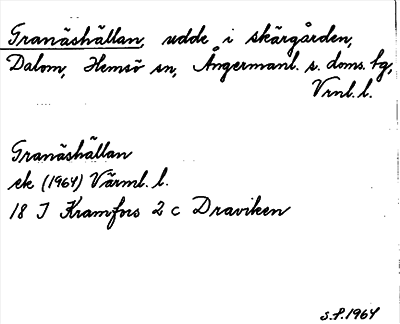 Granäshällan, udde i skärgården,
Dalom, Hemsö sn, Ångermanl. s. doms. tg,
Vrnl. l.
Granäshällan
ek (1964) Värml. l.
18 I Kramfors 2 c Draviken
S.P. 1964